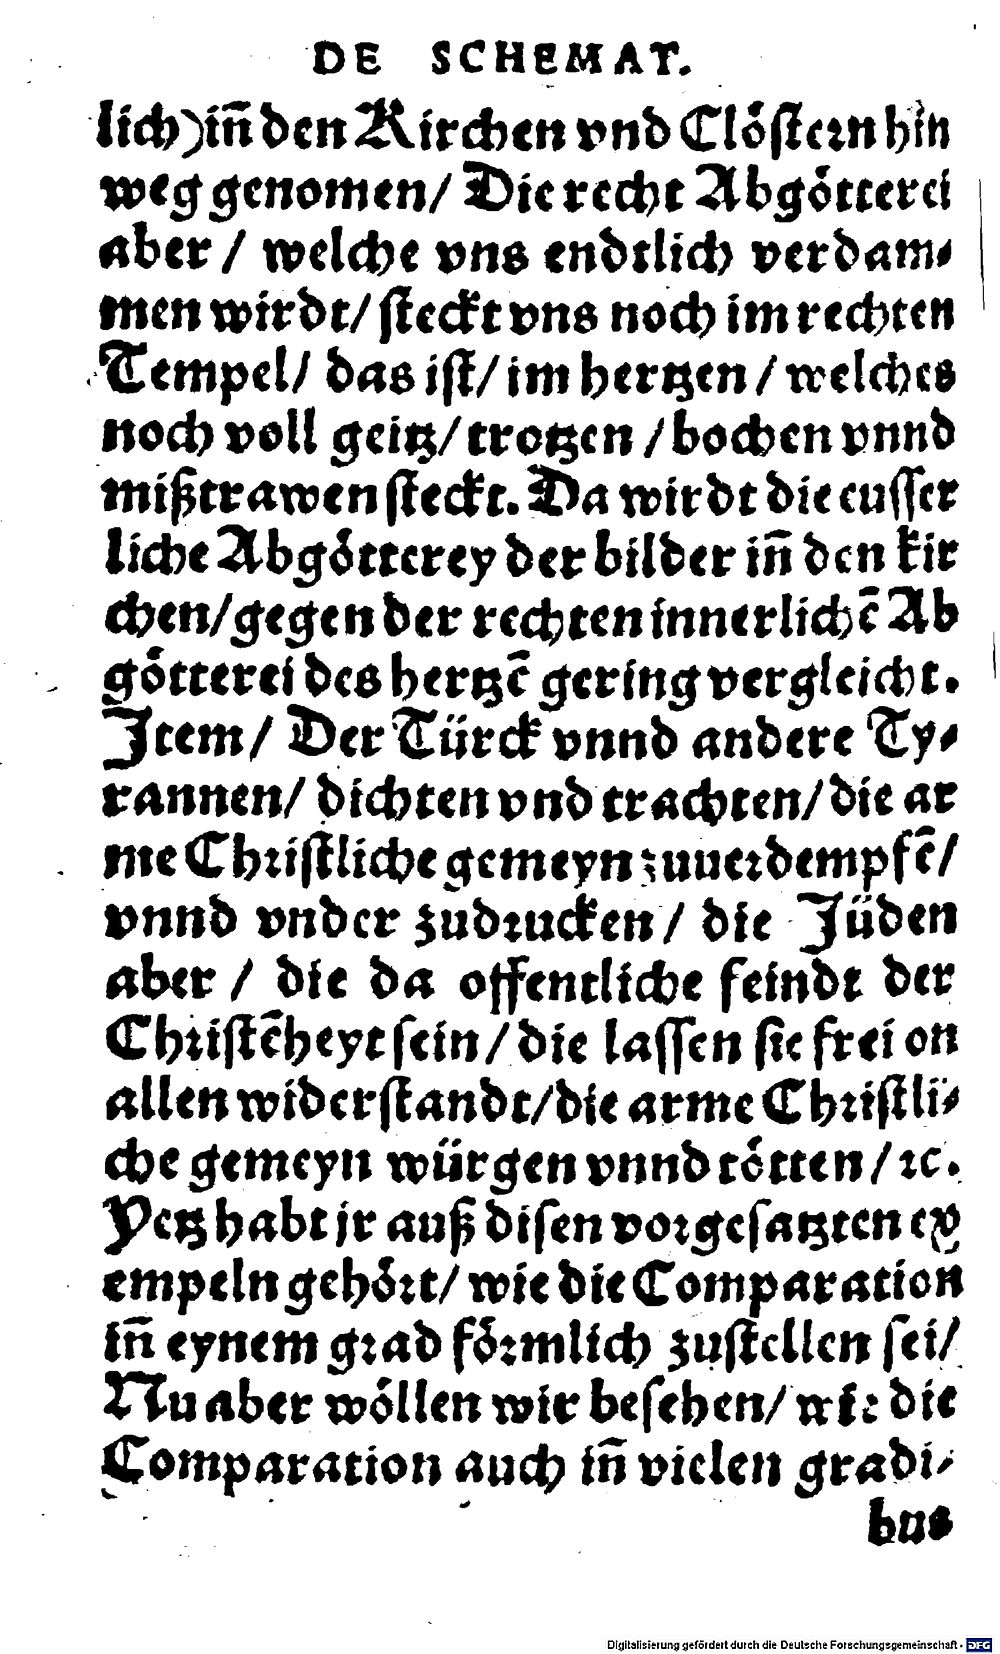 DE SCHEMAT.
lich) in̄ den Kirchen vnd Cloͤſteꝛn hin
weg genomen / Die recht Abgoͤtterei
aber / welche vns endtlich verdam⸗
men wirdt / ſteckt vns noch im rechten
Tempel / das iſt / im hertzen / welches
noch voll geitz / trotzen / bochen vnnd
mißtrawen ſteckt. Da wirdt die euſſer
liche Abgoͤtterey der bilder in̄ den kir
chen / gegen der rechten innerlichē Ab
goͤtterei des hertzē gering vergleicht.
Item / Der Tuͤrck vnnd andere Ty⸗
rannen / dichten vnd trachten / die ar
me Chꝛiſtliche gemeyn zuueꝛdempfē /
vnnd vnder zudꝛucken / die Juͤden
aber / die da offentliche feindt der
Chꝛiſtēheyt ſein / die laſſen ſie frei on
allen widerſtandt / die arme Chꝛiſtli⸗
che gemeyn wuͤrgen vnnd toͤtten / ꝛc.
Yetz habt jr auß diſen voꝛgeſatzten ex
empeln gehoͤꝛt / wie die Comparation
in̄ eynem gꝛad foͤꝛmlich zuſtellen ſei /
Nu aber woͤllen wir beſehen / wie die
Comparation auch in̄ vielen gradi⸗
bus
Digitalisierung gefördert durch die Deutsche Forschungsgemeinschaft - DFG